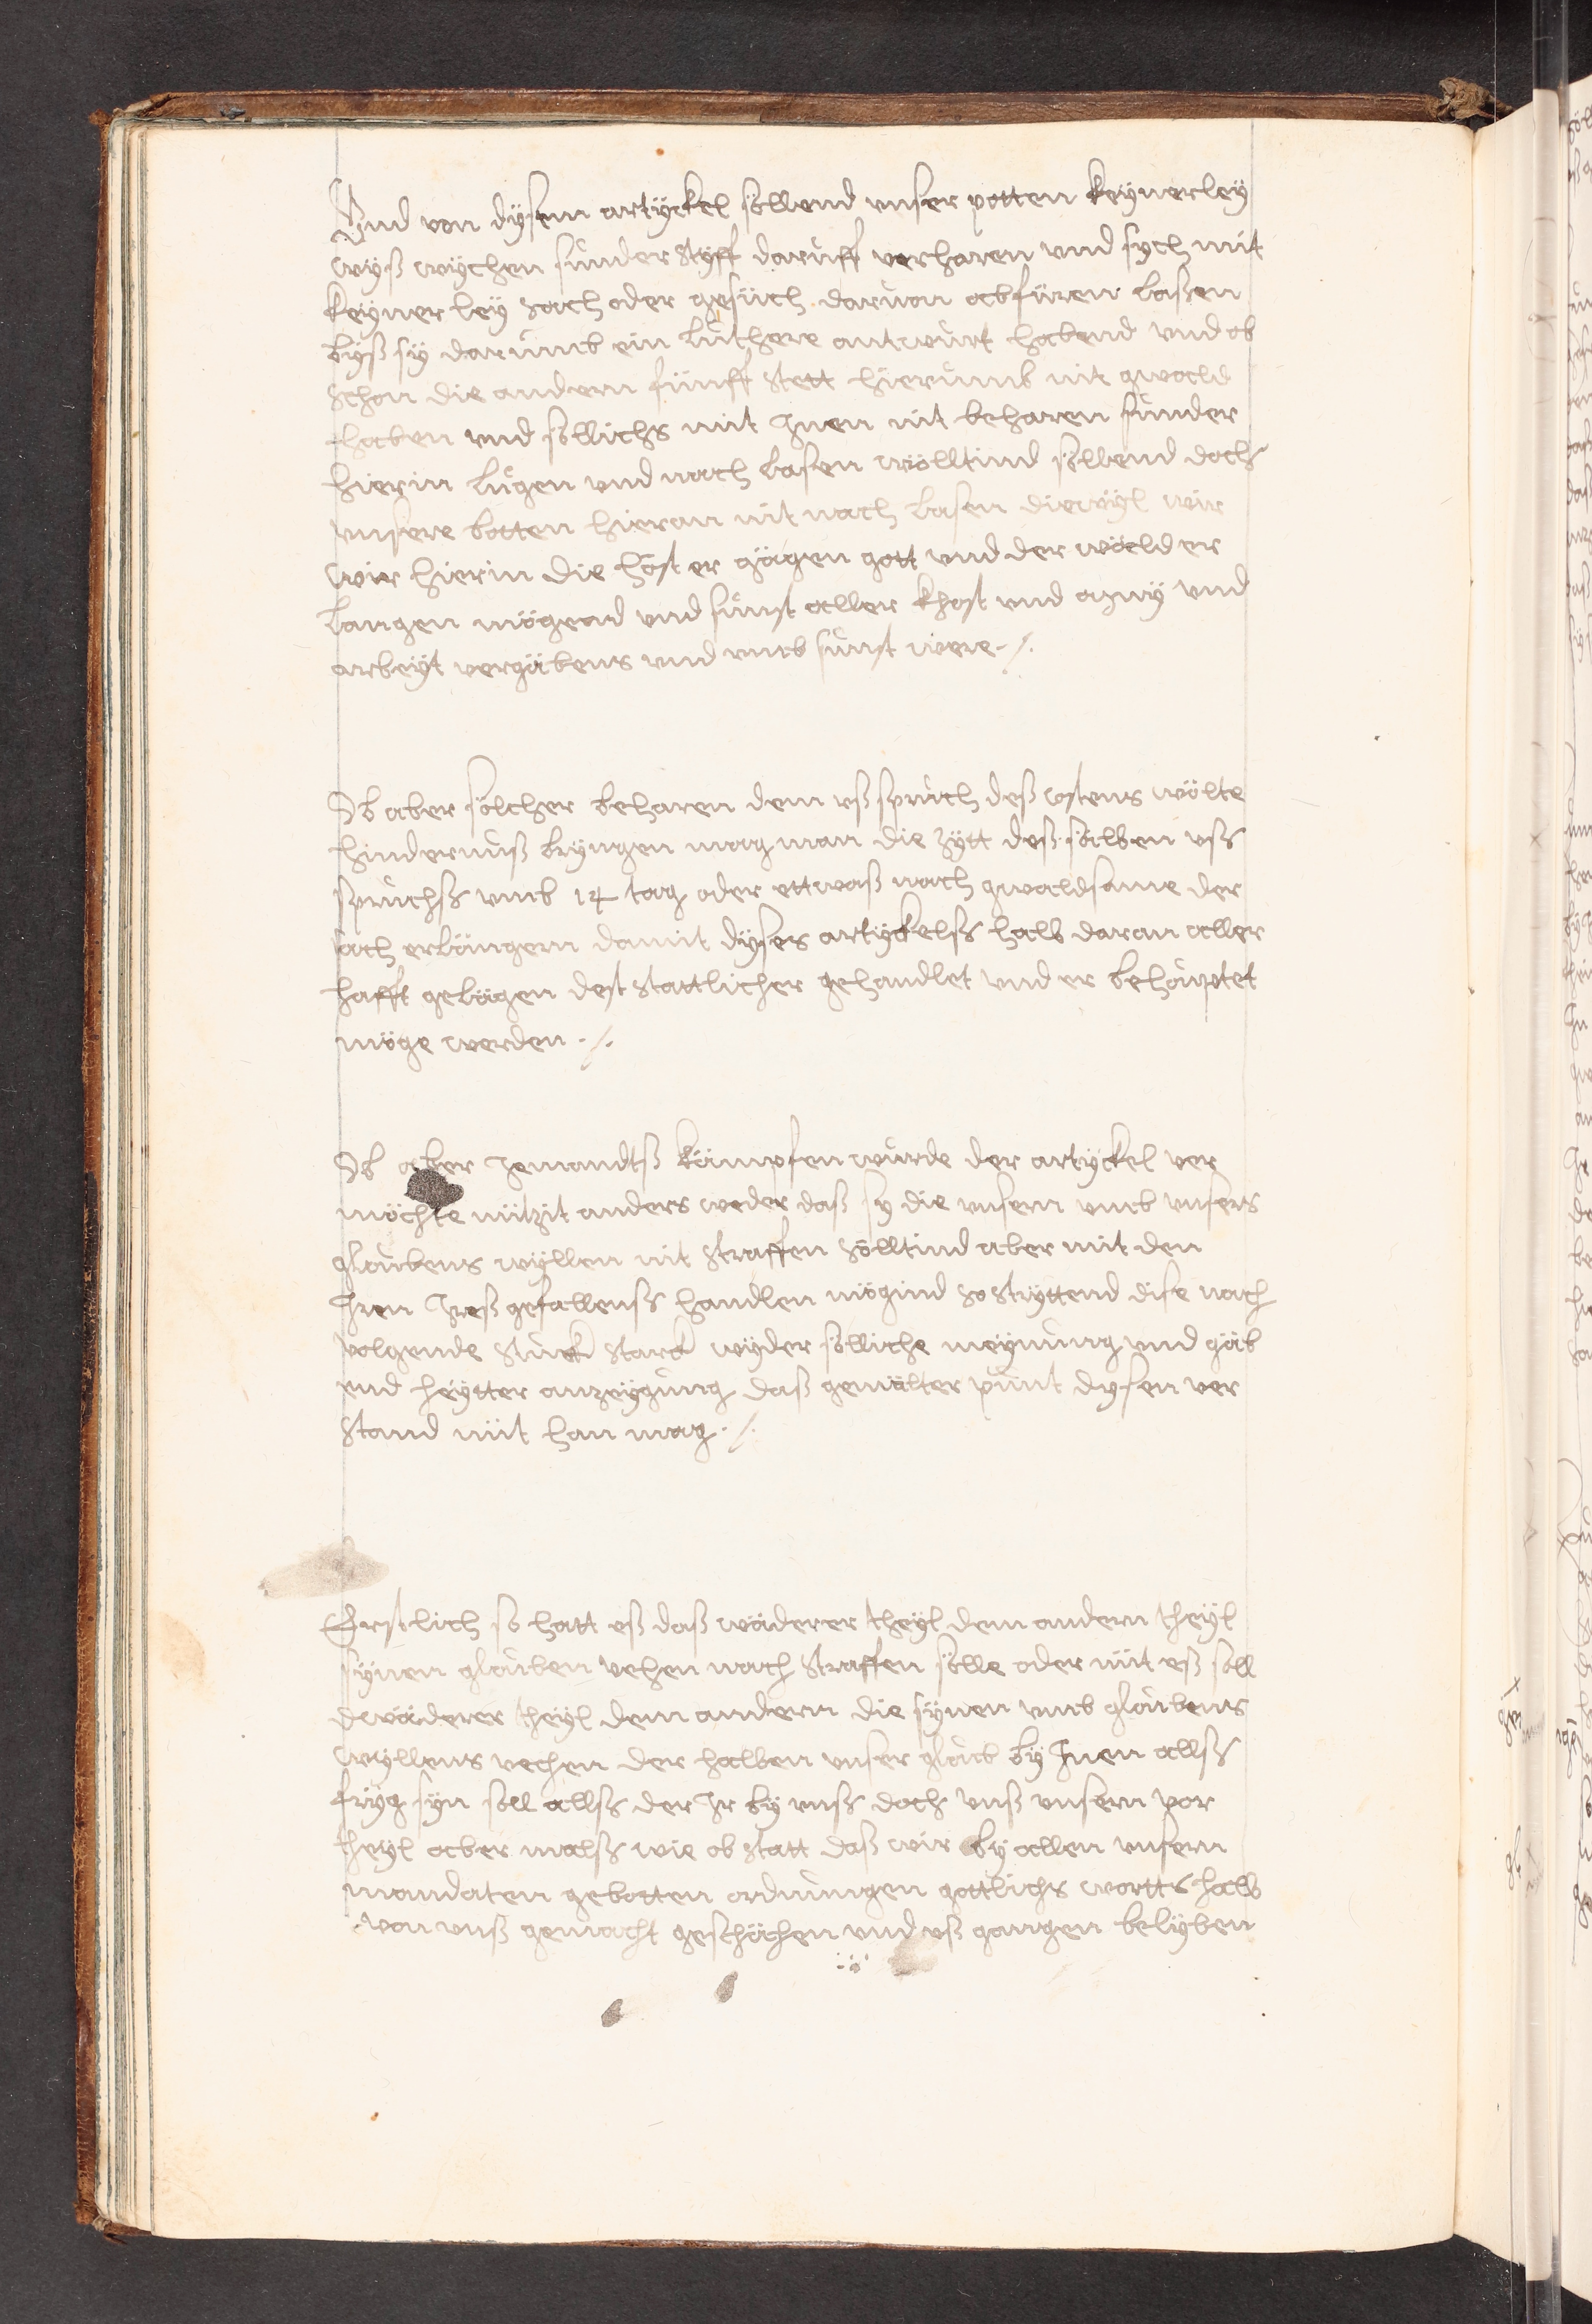 Vnd von dysem artyckel söllend vnser potten keynerley
wyß wychen sunder styff daruff verharen vnd sych mit
keyner ley sach oder gesüch daruon abfüren laßen
byß sy darumb ein luthere antwurt habend vnd ob
schon die andern fünff stett hierumb nit gwald
haben vnd söllichs mit Jnen nit beharen sunder
hierin lugen vnd nach lasen wölltind söllend doch
vnsere botten hieran nit nach lasen diewyl wir
wir hierin die höst er gägen gott vnd der wäld er
langen mögend vnd sunst aller khost vnd müy vnd
arbeyt vergäbens vnd vmb sunst were ./.
Ob aber sölcher beharen dem vßspruch deß costens wölte
hindernuß bryngen mag man die zytt deß sälben vß
spruchß vmb 14 tag oder ettwaß nach gwaldsame der
sach erlängern damit dyses artyckelß halb daran aller
hafft gelägen dest stattlicher gehandlet vnd er behouptet
möge werden ./.
Ob aber Jemandtß kämpfen wurde der artyckel ver
möchte nützit anders weder daß sy die vnsern vmb vnsers
gloubens wyllen nit straffen sölltind aber mit den
Jren Jreß gefallenß handlen mögind so stryttend dise nach
volgende stuck starck wyder sölliche meynung vnd gäb
vnd heytter anzeygung daß gemälter punt dysen ver
stand nüt han mag ./.
Erstlich so hatt eß daß wäderer theyl dem andern theyl
synen glouben vehen nach straffen sölle oder nüt eß soll
dwäderer theyl dem andern die synen vmb gloubens
wyllens vechen der halben vnser gloub by Jnen allß
fryg syn soll allß der Jr by vnß doch vnß vnsern vor
theyl aber malß wie ob statt daß wir by allen vnsern
mandaten gebotten ordnungen gottlichs wortts halb
von vnß gemacht geschächen vnd vß gangen belyben